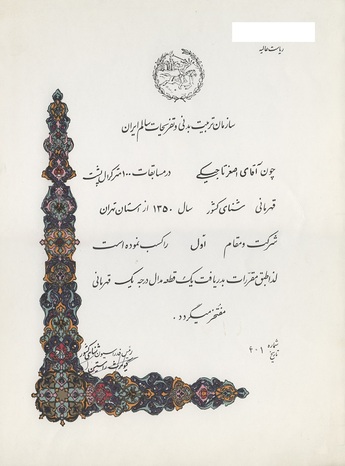 ریاست عالیه
سازمان تربیت بدنی و تفریحات سالم ایران
چون آقای اصغر تاجیکی در مسابقات ۱۰۰ متر کرال پشت
قهرمانی شنای کشور سال ۱۳۵۰ از استان تهران
شرکت و مقام اول را کسب نموده است
لذا طبق مقررات بدریافت یک قطعه مدال درجه یک قهرمانی
مفتخر میگردد .
شماره ۴۰۱
تاریخ
رئیس فدراسیون شنای کشور